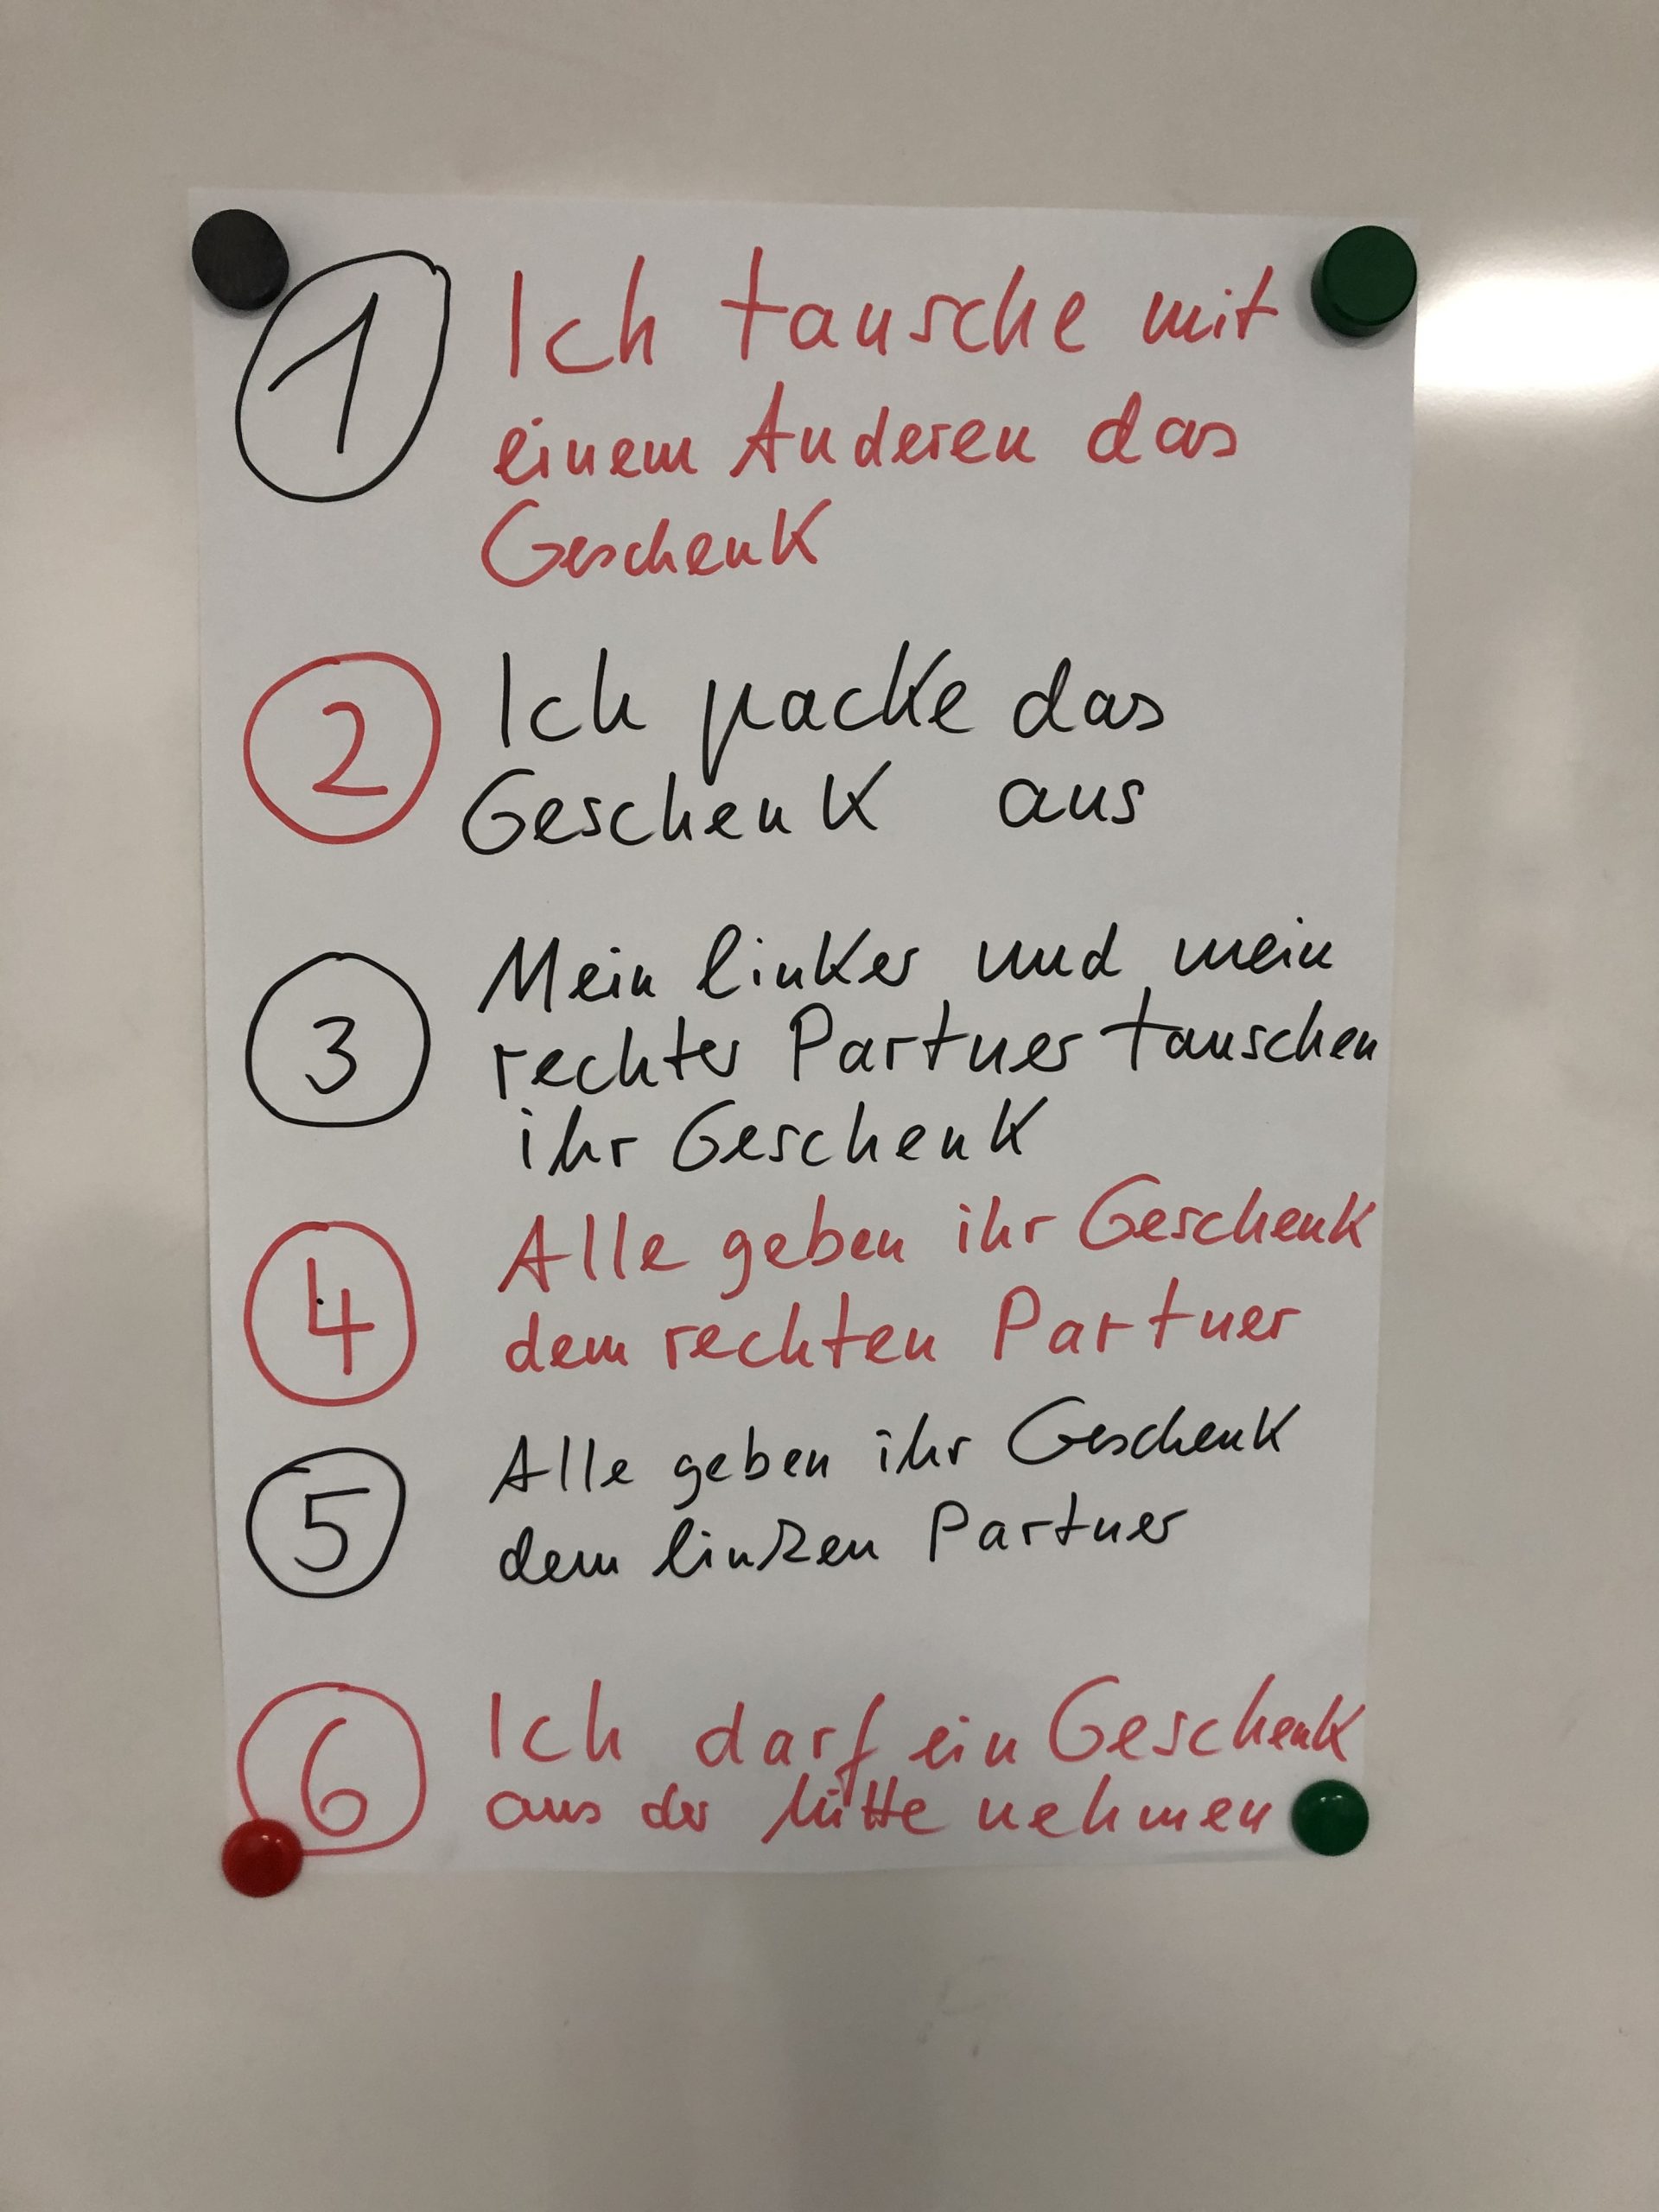 1 Ich tausche mit
einem Anderen das
Geschenk
2 Ich packe das
Geschenk aus
3 Mein linker und mein
rechter Partner tauschen
ihr Geschenk
4 Alle geben ihr Geschenk
dem rechten Partner
5 Alle geben ihr Geschenk
dem linken Partner
6 Ich darf ein Geschenk
aus der Mitte nehmen